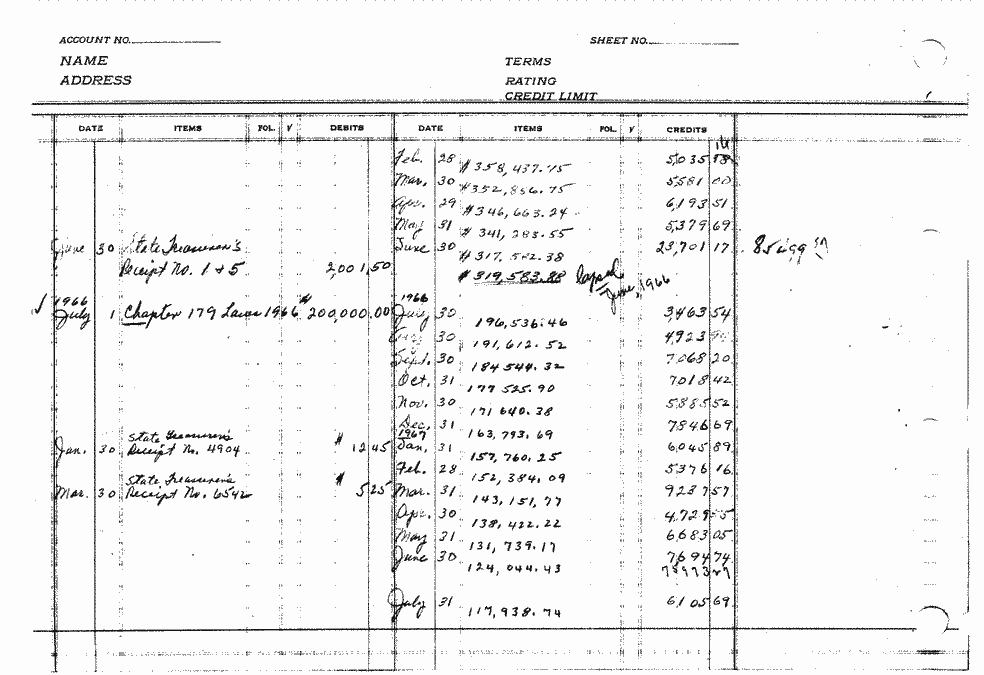 ACCOUNT NO. SHEET NO.
NAME TERMS
ADDRESS RATING
CREDIT LIMIT
DATE ITEMS FOL. √ DEBITS DATE ITEMS FOL. √ CREDITS
Feb. 28 $358,437.75 5,035
Mar. 30 $352,856.75 5,581 00
Apr. 29 $346,663.24 6,193 51
May 31 $341,283.55 5,379 69
June 30 State Treasurer's June 30 $317,582.38 23,701 17
Receipt No. 1 + 5 2,001.50 $319,583.88 lapsed
June, 1966
1966 1966
√ July 1 Chapter 179 Laws 1966 $200,000.00 July 30 196,536.46 3,463 54
30 191,612.52 4,923
Sept. 30 184 544.32 7068 20
Oct. 31 177 525.90 7018 42
Nov. 30 171 640.38 5885 52
Dec. 31 163,793.69 7846 69
1967
Jan. 30 State Treasurer's Receipt No. 4904 $12 45 Jan. 31 157,760.25 6045 89
Feb. 28 152,384.09 5376 16
Mar. 30 State Treasurer's Receipt No. 6542 $5 25 Mar. 31 143,151,77 9237 57
Apr. 30 138,422.22 4,729 55
May 31 131,739.17 6,683 05
June 30 124,044.43 7,694 74
July 31 117,938.74 6105 69